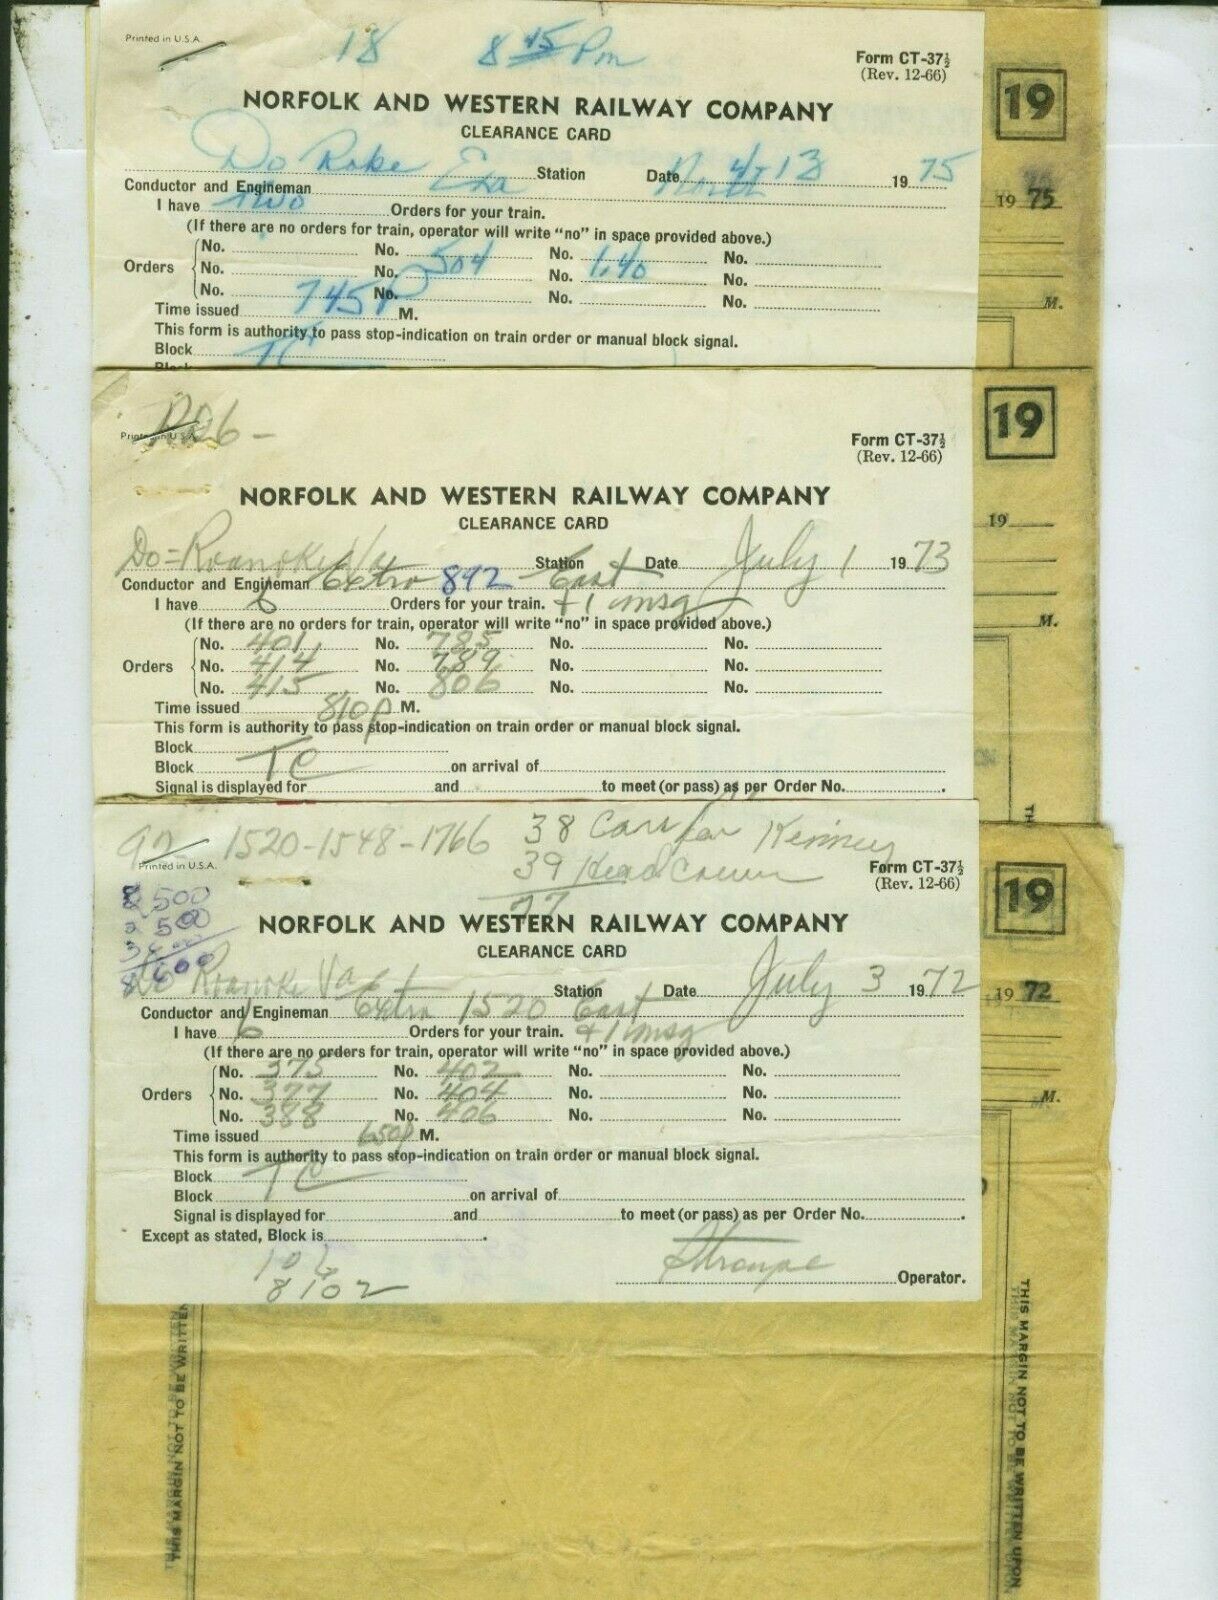 Printed in U.S.A.
18 8 45 Pm
Form CT-37½
(Rev. 12-66)
19
NORFOLK AND WESTERN RAILWAY COMPANY
CLEARANCE CARD
Do Station Date 4 13 1975
Conductor and Engineman
1975
I have Two Orders for your train.
(If there are no orders for train, operator will write "no" in space provided above.)
No. No. 504 No. 140 No.
Orders No. No. No. No.
No. No. No. No.
M.
Time issued 745 P M.
This form is authority to pass stop-indication on train order or manual block signal.
Block TC
Block
Printed in U.S.A.
Form CT-37½
(Rev. 12-66)
19
NORFOLK AND WESTERN RAILWAY COMPANY
CLEARANCE CARD
19
Do=Roanoke Va Station Date July 1 1973
Conductor and Engineman Extra 892 East
I have 6 Orders for your train. + 1 msg
M.
(If there are no orders for train, operator will write "no" in space provided above.)
No. 401 No. 785 No. No.
Orders No. 414 No. 789 No. No.
No. 415 No. 806 No. No.
Time issued 810p M.
This form is authority to pass stop-indication on train order or manual block signal.
Block TC
Block on arrival of
Signal is displayed for and to meet (or pass) as per Order No. .
92 1520-1548-1766 38 Cars for
Printed in U.S.A.
39 Head
77
Form CT-37½
(Rev. 12-66)
19
500
2 500
8 600
NORFOLK AND WESTERN RAILWAY COMPANY
CLEARANCE CARD
Do Roanoke Va Station Date July 3 1972
1972
Conductor and Engineman Extra 1520 East
I have 6 Orders for your train. + 1 msg
(If there are no orders for train, operator will write "no" in space provided above.)
No. 375 No. 402 No. No.
Orders No. 377 No. 404 No. No.
No. 388 No. 406 No. No.
M.
Time issued 650p M.
This form is authority to pass stop-indication on train order or manual block signal.
Block TC
Block on arrival of
Signal is displayed for and to meet (or pass) as per Order No. .
Except as stated, Block is .
8102
Operator.
THIS MARGIN NOT TO BE WRITTEN
THIS MARGIN NOT TO BE WRITTEN UPON